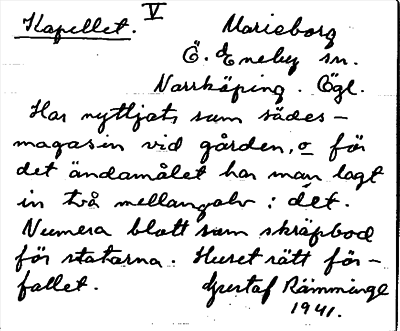 Kapellet. V Marieborg
Ö. Eneby sn.
Norrköping. Ögl.
Har nyttjats som sädes-
magasin vid gården, o för
det ändamålet har man lagt
in två mellangolv i det.
Numera blott som skräpbod
för statarna. Huset rätt för-
fallet. Gustaf Rämminge
1941.